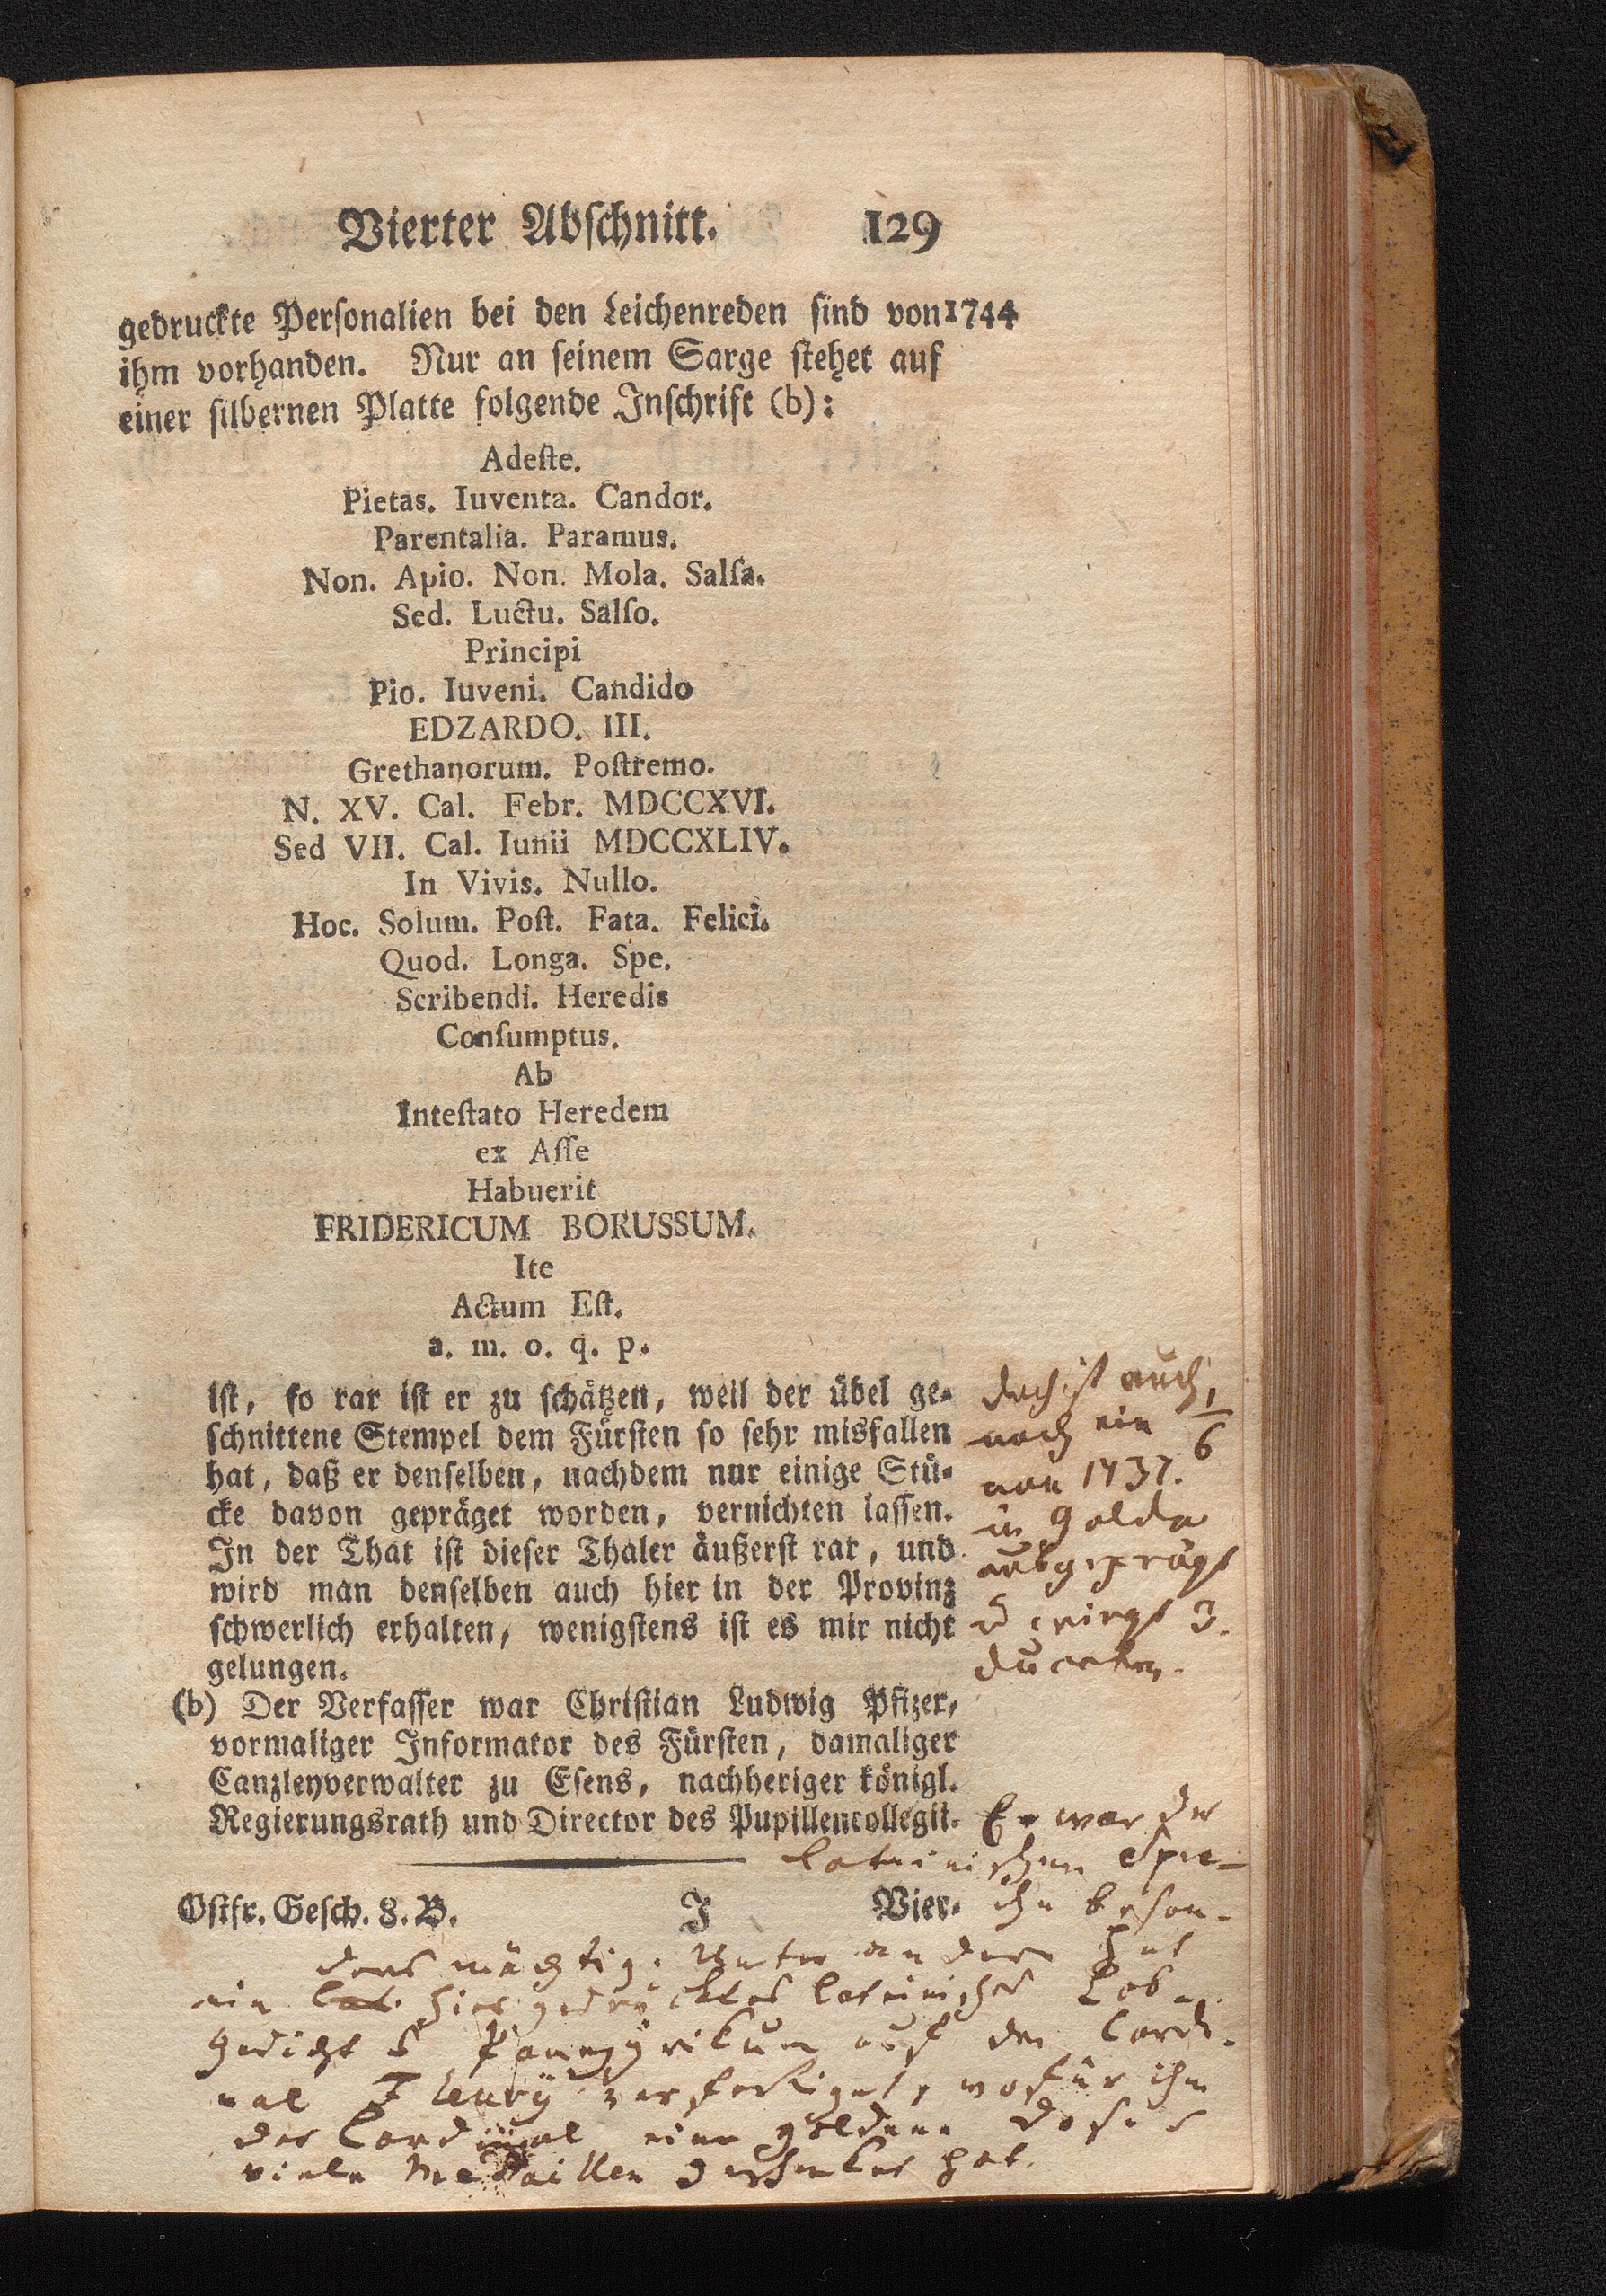 Vierter Abschnitt. 129
gedruckte Personalien bei den Leichenreden sind von 1744
ihm vorhanden. Nur an seinem Sarge stehet auf
einer silbernen Platte folgende Inschrift (b):
Adeſte.
Pietas. Iuventa. Candor.
Parentalia. Paramus.
Non. Apio. Non. Mola. Salſa.
Sed. Luctu. Salſo.
Principi
Pio. Iuveni. Candido
EDZARDO. III.
Grethanorum. Poſtremo.
N. XV. Cal. Febr. MDCCXVI.
Sed VII. Cal. Iunii MDCCXLIV.
In Vivis. Nullo.
Hoc. Solum. Poſt. Fata. Felici.
Quod. Longa. Spe.
Scribendi. Heredis
Conſumptus.
Ab
Inteſtato Heredem
ex Aſſe
Habuerit
FRIDERICUM BORUSSUM.
Ite
Actum Eſt.
a. m. o. q. p.
ist, so rar ist er zu schätzen, weil der übel ge-
schnittene Stempel dem Fürsten so sehr misfallen
hat, daß er denselben, nachdem nur einige Stü-
cke davon gepräget worden, vernichten lassen.
In der That ist dieser Thaler äußerst rar, und
wird man denselben auch hier in der Provinz
schwerlich erhalten, wenigstens ist es mir nicht
gelungen.
doch ist auch
noch ein 1/6
von 1737.
in Golde
ausgeprägt
u wiegt 3.
Ducaten.
(b) Der Verfasser war Christian Ludwig Pfizer,
vormaliger Informator des Fürsten, damaliger
Canzleyverwalter zu Esens, nachheriger königl.
Regierungsrath und Director des Pupillencollegii.
Ostfr. Gesch. 8. B. J Vier-
Er war der
lateinischen Spra-
che beson-
ders mächtig. Unter andern hat
ein lat. hier gedrucktes lateinisches Lob-
gedicht Panegyrikum auf den Cardi-
nal Fleury verfertiget, wofür ihm
der Cardinal eine goldene Dose
viele Medaillen geschenket hat.